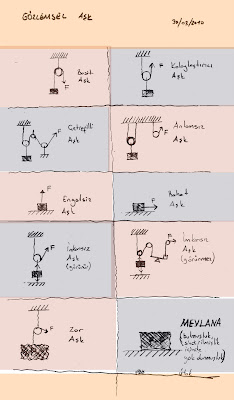 GÖZLEMSEL AŞK
30/03/2010
F
Basit
Aşk
F
Kolaylaştırıcı
Aşk
F
Çetrefilli
Aşk
F
Anlamsız
Aşk
F
Engelsiz
Aşk
F
Rahat
Aşk
F
İmkansız
Aşk
(görünür)
F
İmkansız
Aşk
(görünmez)
F
Zor
Aşk
MEVLANA